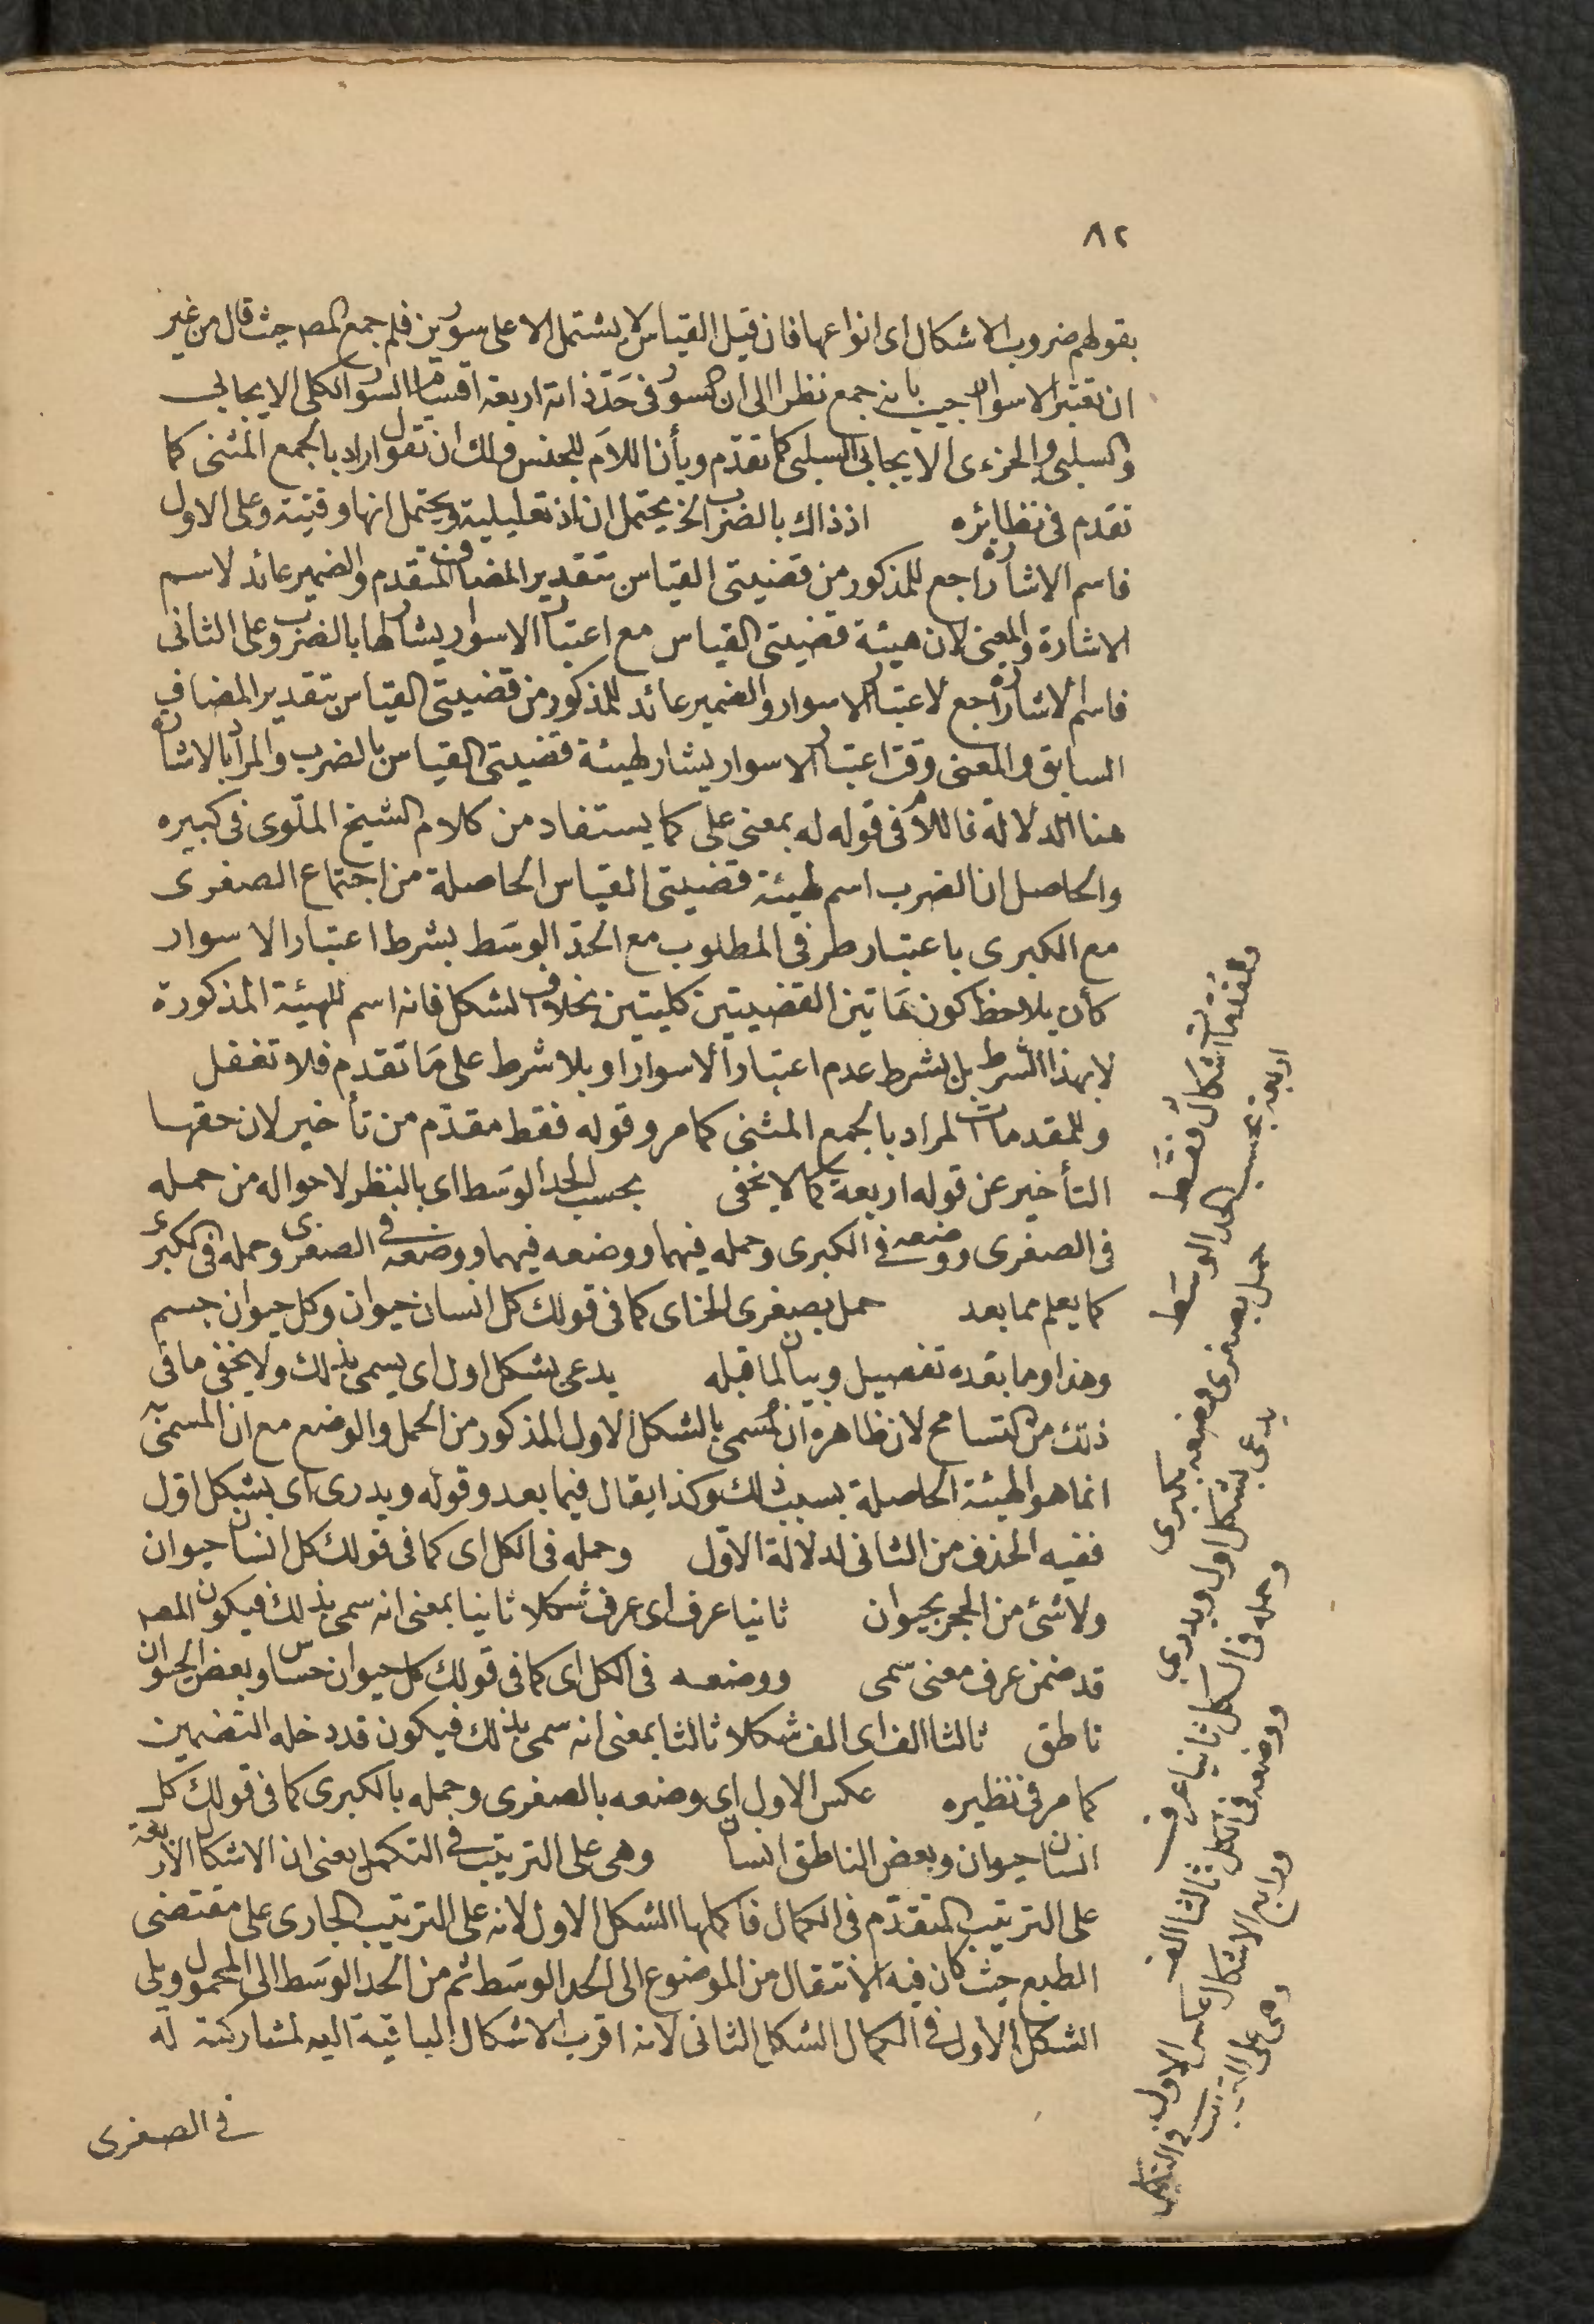 ٨٢
بقولهم ضروب الاشكال اى انواعها فان قيل القياس لا يشتمل الا على سورين فلم جمع المصـ حيث قال من غير
ان تعتبر الاسوار اجيب بانه جمع نظرا الى ان السور فى حَدّ ذاته اربعة اقسام السور الكلى الايجابى
والسلبى والجزءى الايجابى والسلبى كما تقدّم وبأن اللاَم للجنس ولك ان تقول اراد بالجمع المثنى كما
تقدم فى نظائره اذ ذاك بالضرب الخ يحتمل ان اذ تعليلية ويحتمل انها وقتية وعلى الاول
فاسم الاشارة راجع للمذكور من قضيتى القياس بتقدير المضاف المتقدم والضمير عائد لاسم
الاشارة والمعنى لان هيئة قضيتى القياس مع اعتبار الاسوار يشار لها بالضرب وعلى الثانى
فاسم الاشارة راجع لاعتبار الاسوار والضمير عائد للمذكور من قضيتى القياس بتقدير المضاف
السابق والمعنى وقت اعتبار الاسوار يشار لهيئة قضيتى القياس بالضرب والمراد بالاشارة
هنا الدلالة فاللام فى قوله له بمعنى على كما يستفاد من كلام الشيخ الملّوى فى كبيره
والحاصل ان الضرب اسم لهيئة قضيتى القياس الحاصلة من اجتماع الصغرى
مع الكبرى باعتبار طرفى المطلوب مع الحدّ الوسَط بشرط اعتبار الاسوار
كأن يلاحظ كون هَاتين القضيتين كليتين بخلاف الشكل فانه اسم للهيئة المذكورة
لا بهذا الشرط بل بشرط عدم اعتبار الاسوار او بلا شرط على مَا تقدم فلا تغفل
وللمقدمات المراد بالجمع المثنى كما مر وقوله فقط مقدّم من تأخير لان حقها
التأخير عن قوله اربعة كما لا يخفى بحسب الحد الوسَط اى بالنظر لاحواله من حمله
فى الصغرى ووضعه فى الكبرى وحمله فيهما ووضعه فيهما ووضعه فى الصغرى وحمله فى الكبرى
كما يعلم مما بعد حمل بصغرى الخ اى كما فى قولك كل انسان حيوان وكل حيوان جسم
وهذا وما بعده تفصيل وبيان لما قبله يدعى بشكل اول اى يسمى بذلك ولا يخفى ما فى
ذلك من التسامح لان ظاهره ان المسَمى بالشكل الاول المذكور من الحمل والوضع مع ان المسمىّ
انما هو الهيئة الحاصلة بسبب ذلك وكذا يقال فيما بعد وقوله ويدرى اى بشكل اوّل
ففيه الحذف من الثانى لدلالة الاوّل وحمله فى الكل اى كما فى قولك كل انسان حيوان
ولا شئ من الحجر بحيوان ثانيا عرف اى عرف شكلا ثانيا بمعنى انه سمى بذلك فيكون المصـ
قد ضمن عرف معنى سمى ووضعه فى الكل اى كما فى قولك كل حيوان حساس وبعض الحيوان
ناطق ثالثا الف اى الف شكلا ثالثا بمعنى انه سمى بذلك فيكون قد دخله التضمين
كما مر فى نظيره عكس الاول اى وضعه بالصغرى وحمله بالكبرى كما فى قولك كل
انسان حيوان وبعض الناطق انسان وهى على الترتيب فى التكمل يعنى ان الاشكال الاربعة
على الترتيب المتقدّم فى الكمال فاكملها الشكل الاول لانه على الترتيب الجارى على مقتضى
الطبع حيث كان فيه الانتقال من الموضوع الى الحد الوسَط ثم من الحد الوسَط الى المحمول ويلى
الشكل الاول فى الكمال الشكل الثانى لانه اقرب الاشكال الباقية اليه لمشاركته له
فى الصغرى
وللمقدمات اشكالٌ فقط
اربعة بحسب الحد الوسَط
حمل بصغرى وضعه بكبرى
يدعى بشكل اول ويدرى
وحمله فى الكل ثانيا عرف
ووضعه فى الكل ثالثا الف
ورابع الاشكال عكس الاول
وهى على الترتيب فى التكمل